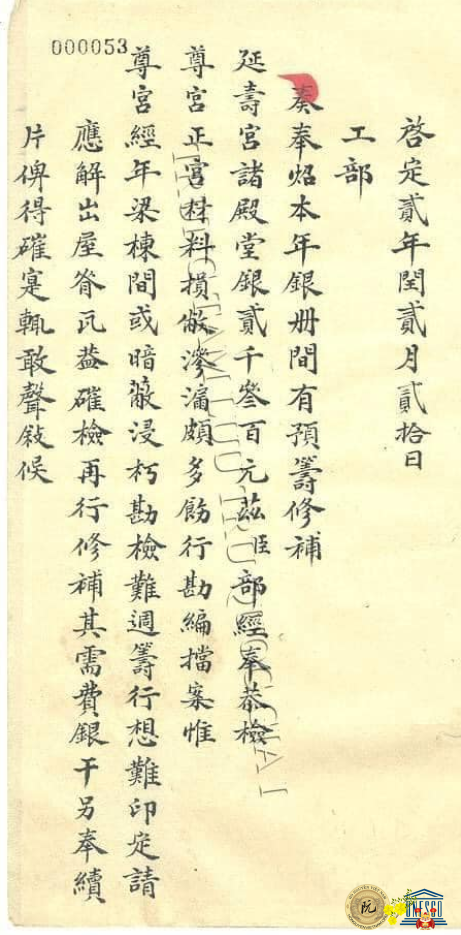 000053
啓定貳年閏貳月貳拾日
工部
奏奉炤本年銀册間有預籌修補
延壽宮諸殿堂銀貳千叁百元茲臣部經奉恭檢
尊宮正宮材料損傲滲漏頗多飭行勘編擋案惟
尊宮經年梁棟間或暗蔽浸朽勘檢難週籌行想難印定請
應解出屋脊瓦蓋確檢再行修補其需費銀干另奉續
片俾得確寔輒敢聲敍候
阮
UNESCO